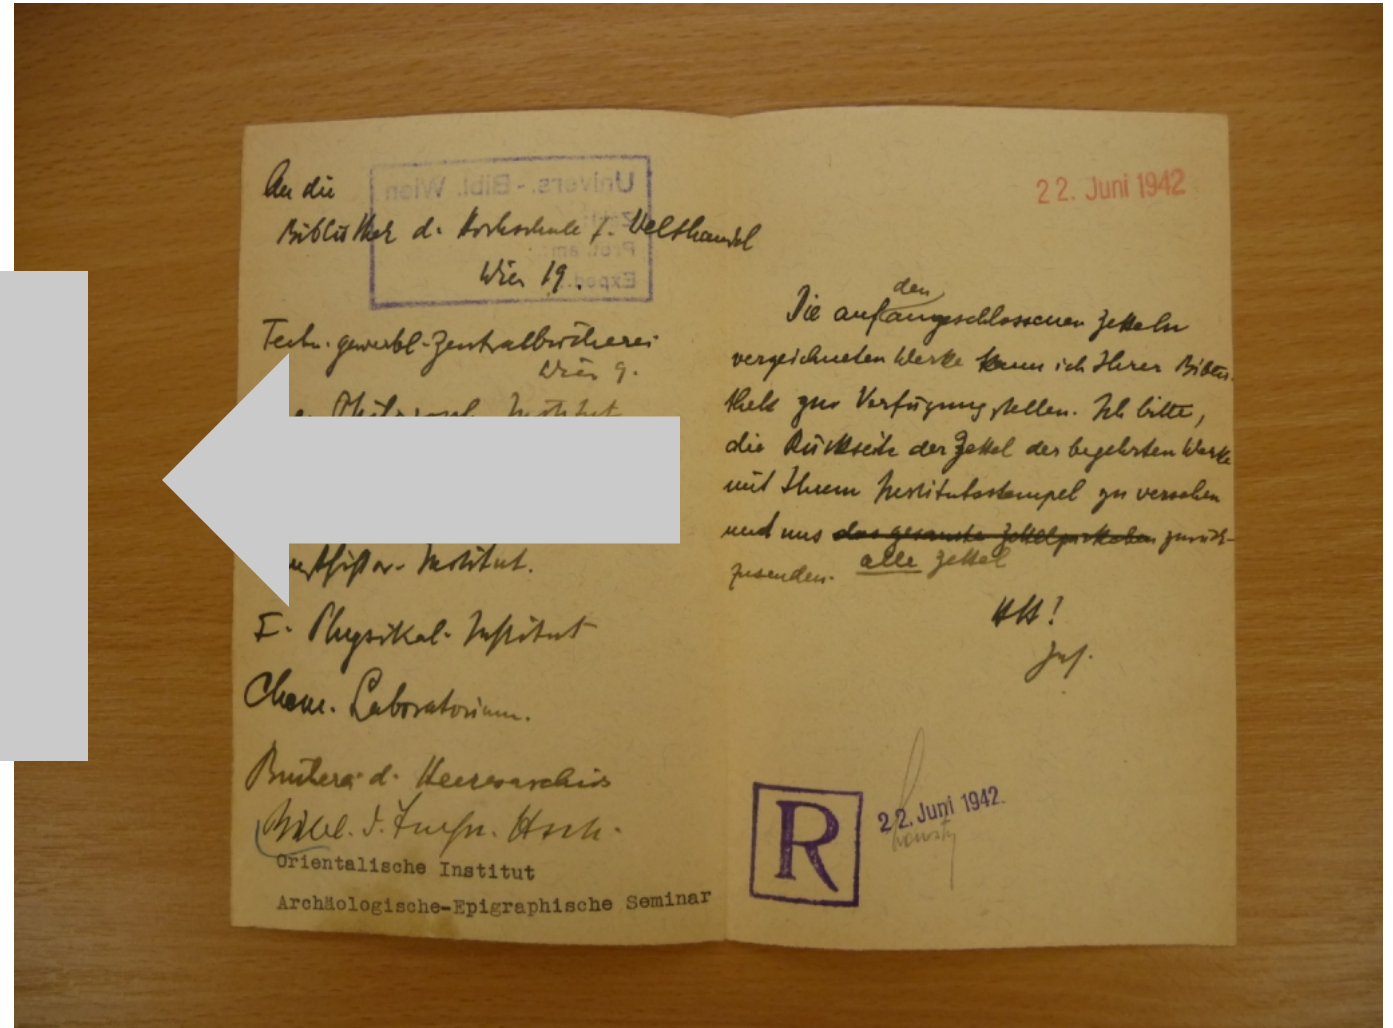 An die
Bibliothek d. Hochschule f. Welthandel
Wien 19.
Univers.-Bibl. Wien
Exped.
Techn.-gewerbl. Zentralbücherei
Wien 9.
Philosoph. Institut
Kunsthistor. Institut.
I. Physikal. Institut
Chem. Laboratorium.
Bücherei d. Heeresarchivs
Bibl. d. Techn. Hsch.
Orientalische Institut
Archäologische-Epigraphische Seminar
22. Juni 1942
den
Die auf angeschlossenen Zetteln
verzeichneten Werke kann ich Ihrer Biblio-
thek zur Verfügung stellen. Ich bitte,
die Rückseite der Zettel der begehrten Werke
mit Ihrem Institutsstempel zu versehen
und uns das gesamte zurück-
zusenden. alle Zettel
HH!
R
22. Juni 1942.